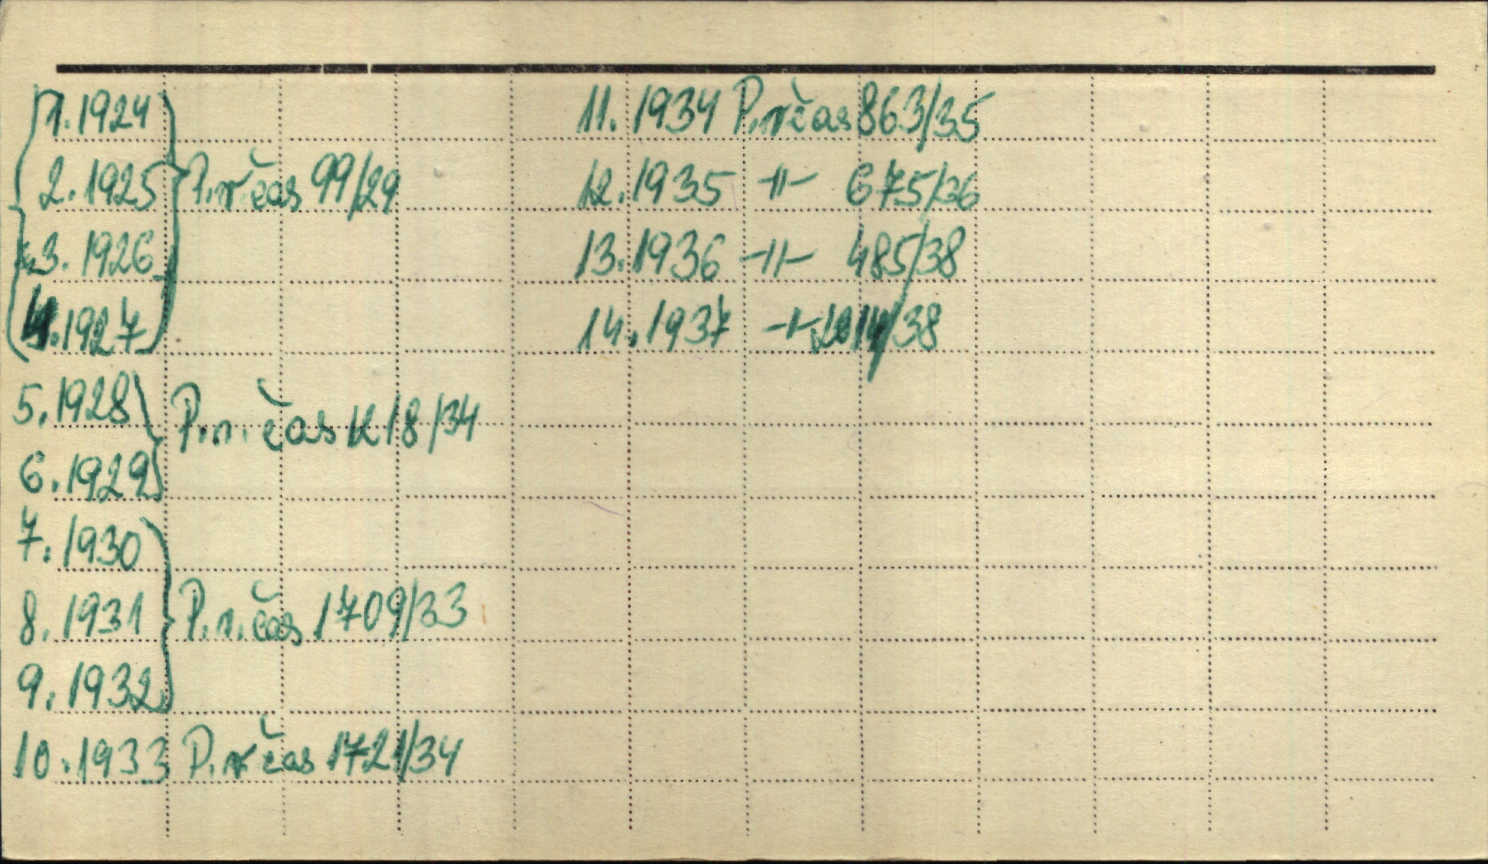 1. 1924
2. 1925 P.r. čas 99/29
3. 1926
4. 1927
5. 1928
P.r. čas 1218/34
6. 1929
7. 1930
8. 1931 P.r. čas 1709/33
9. 1932
10. 1933 P.r čas 1721/34
11. 1934 P.r čas 863/35
12. 1935 -"- 675/36
13. 1936 -"- 485/38
14. 1937 -"- /38